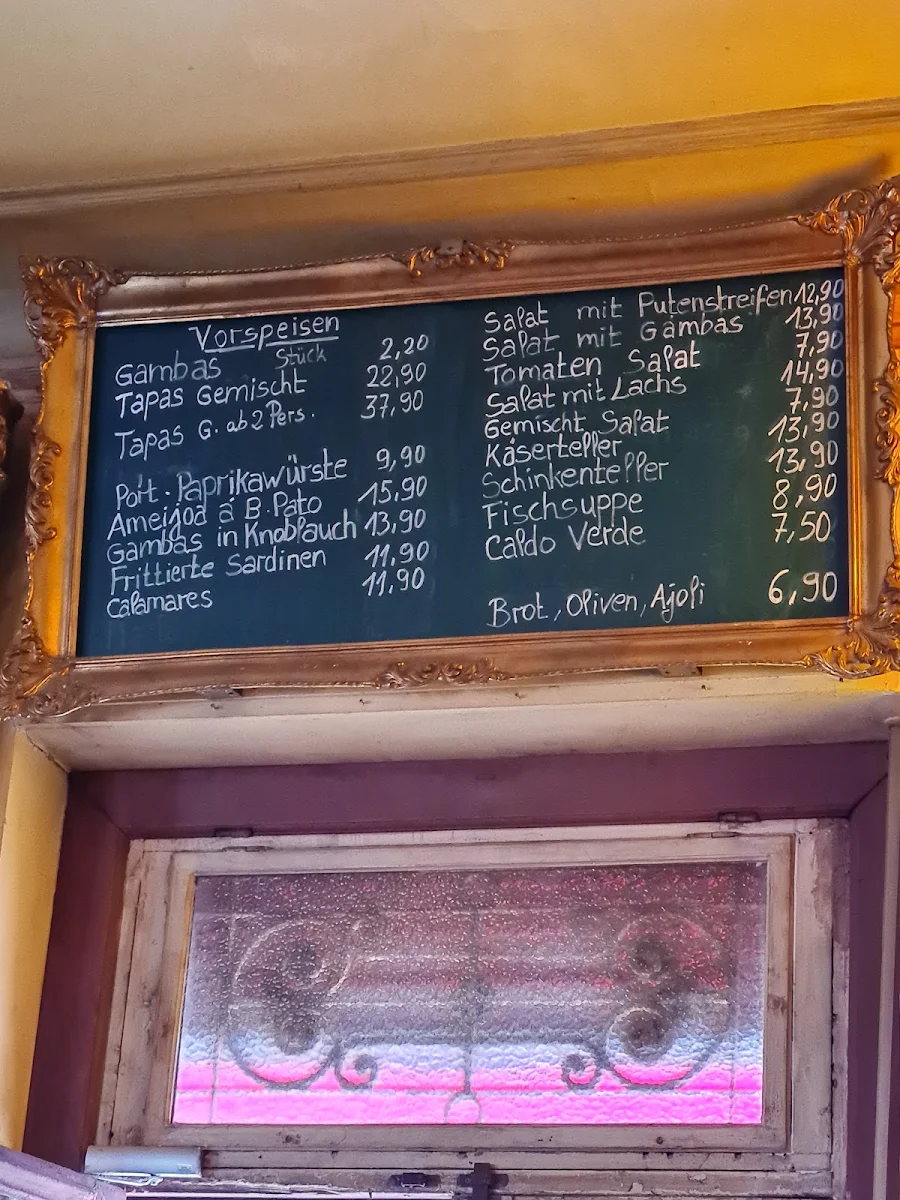 Vorspeisen
Gambas Stück 2,20
Tapas Gemischt 22,90
Tapas G. ab 2 Pers. 37,90
Port. Paprikawürste 9,90
Ameijoa á B. Pato 15,90
Gambas in Knoblauch 13,90
Frittierte Sardinen 11,90
Calamares 11,90
Salat mit Putenstreifen 12,90
Salat mit Gambas 13,90
Tomaten Salat 7,90
Salat mit Lachs 14,90
Gemischt Salat 7,90
Käserteller 13,90
Schinkenteller 13,90
Fischsuppe 8,90
Caldo Verde 7,50
Brot, Oliven, Ajoli 6,90